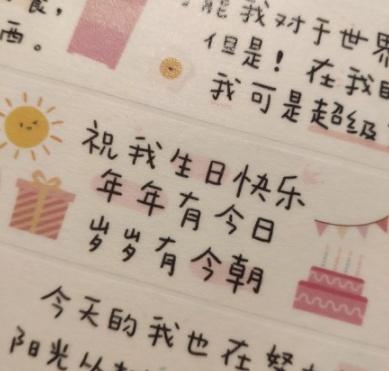 西。
能我对于世界
但是！在我
我可是超级
祝我生日快乐
年年有今日
岁岁有今朝
今天的我也在努
阳光